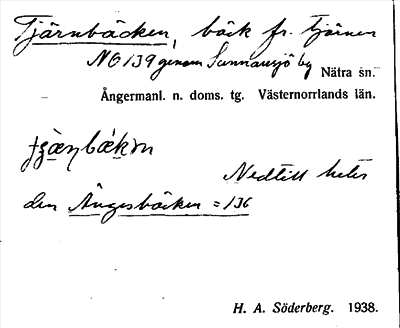 Tjärnbäcken, bäck fr. Tjärnen
NO 139 genom Sunnansjö by Nätra sn.
Ångermanl. n. doms. tg. Västernorrlands län.
Nedtill heter
den Ångesbäcken = 136
H. A. Söderberg. 1938.